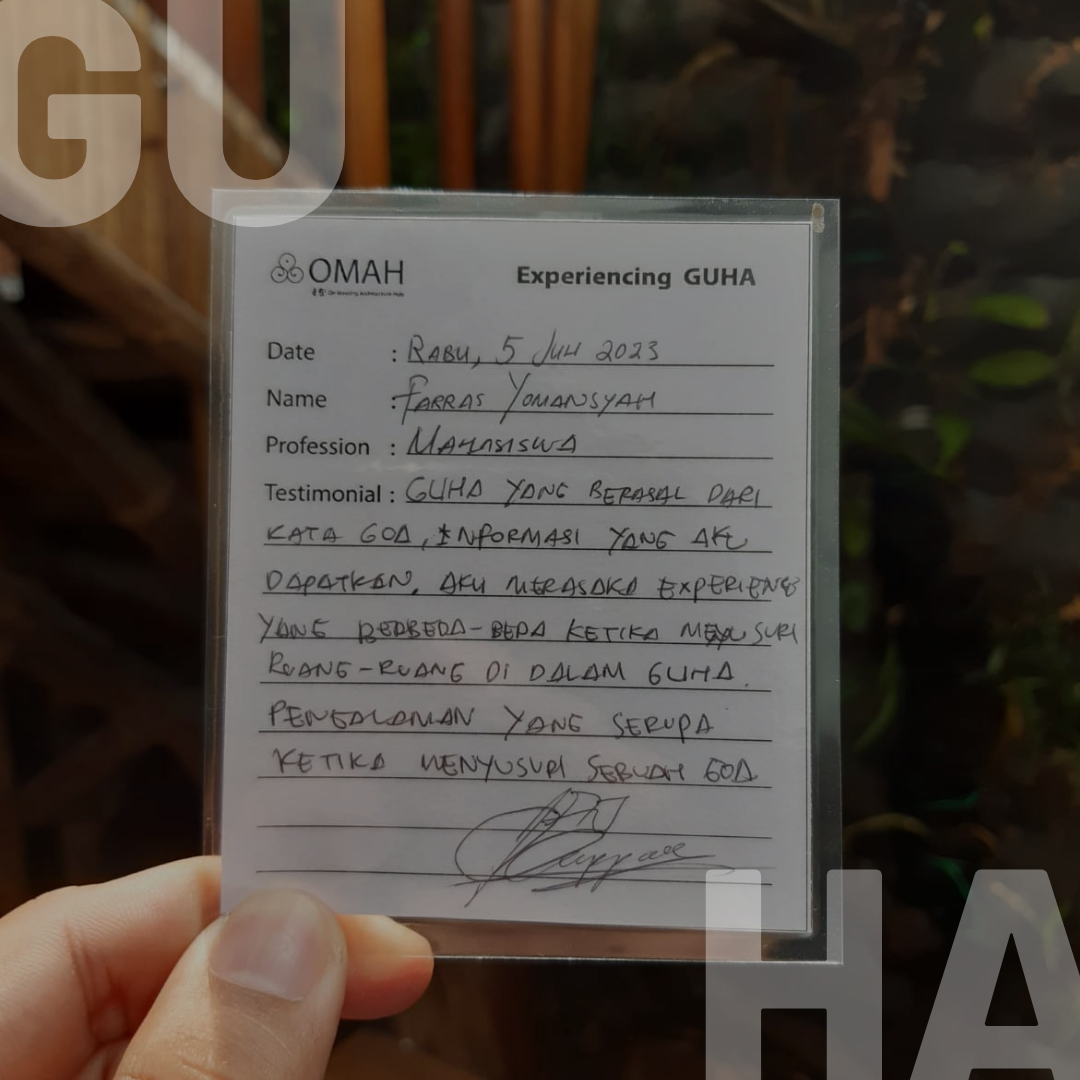 GU
OMAH
Experiencing GUHA
Date : RABU, 5 JULI 2023
Name : FARRAS YOMANSYAH
Profession : MAHASISWA
Testimonial : GUHA YANG BERASAL DARI
KATA GOA, INFORMASI YANG AKU
DAPATKAN. AKU MERASAKA EXPERIENCE
YANG BERBEDA-BEDA KETIKA MENYUSURI
RUANG-RUANG DI DALAM GUHA.
PENGALAMAN YANG SERUPA
KETIKA MENYUSURI SEBUAH GOA
HA